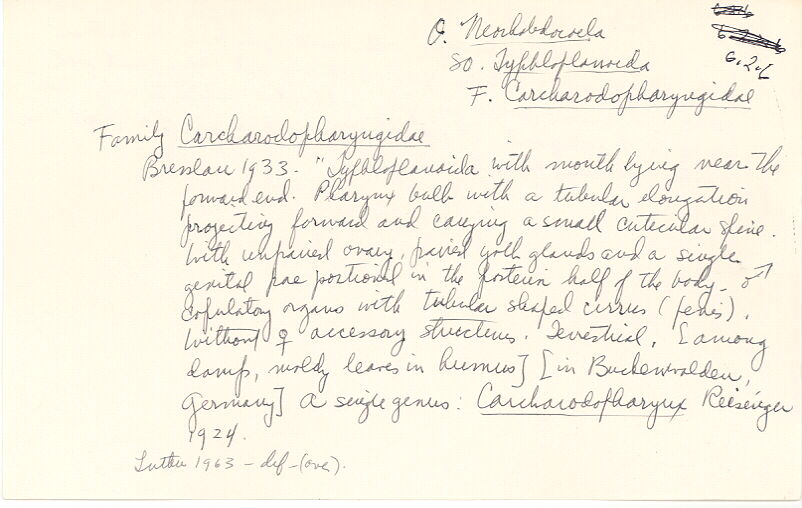 O. Neorhabdocoela
SO. Typhloplanoida
6.2.1
F. Carcharodopharyngidae
Family Carcharodopharyngidae
Bresslau 1933. "Typhloplanoida with mouth lying near the
forward end. Pharynx bulb with a tubular elongation
projecting forward and carrying a small cuticular spine.
With unpaired ovary, paired yolk glands and a single
genital pore portioned in the posterior half of the body. ♂
copulatory organs with tubular shaped cirrus (penis).
Without ♀ accessory structures. Terrestrial, [among
damp, moldy leaves in humus] [in Buchenwalden,
Germany] A single genus: Carcharodopharynx Reisinger
1924.
Luther 1963 - def - (over).